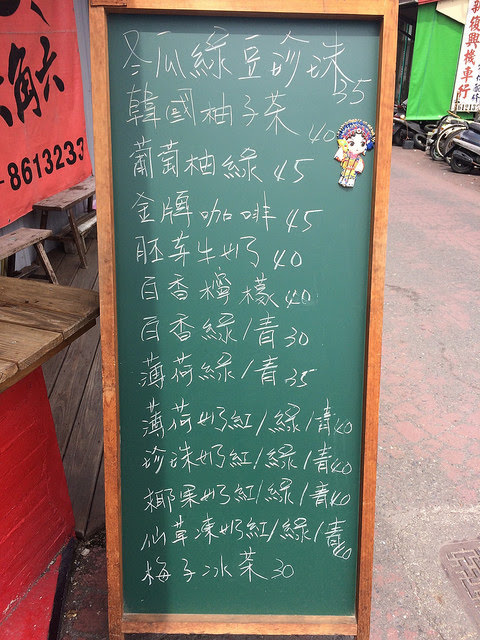 冬瓜綠豆珍珠 35
韓國柚子茶 40
葡萄柚綠 45
金牌咖啡 45
胚芽牛奶 40
百香檸檬 40
百香綠/青 30
薄荷綠/青 35
薄荷奶紅/綠/青 40
珍珠奶紅/綠/青 40
椰果奶紅/綠/青 40
仙草凍奶紅/綠/青 40
梅子冰茶 30
六角
-8613233
復興機車行